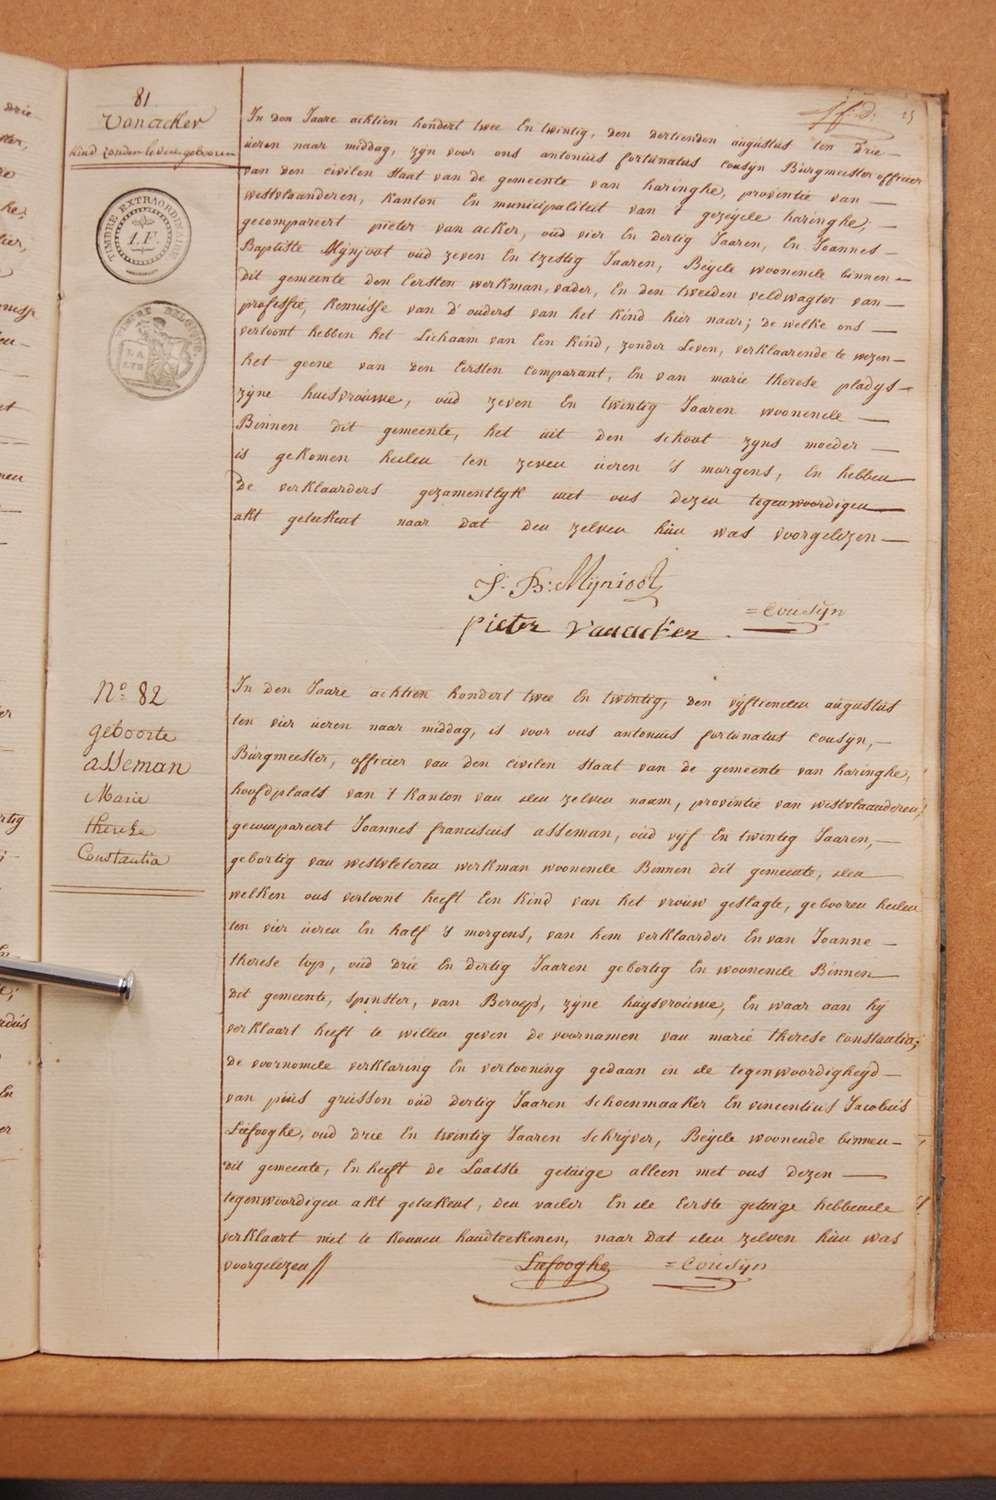 81
Vanacker
kind zonder leven gebooren
TIMBRE EXTRAORDINAIRE
1. F.
25
In den Jaare achtien hondert twee En twintig, den dertienden augustus ten drie
ueren naar middag, zyn voor ons antonius fortunatus cousyn Burgmeester officier
van den civilen staat van de gemeente van haringhe, provintie van
westvlaanderen, kanton En municipaliteit van 't gezeijde haringhe;
gecompareert pieter van acker, oud vier En dertig Jaaren, En Joannes
Baptiste Mijnjoot oud zeven En tzestig Jaaren, Beijde woonende binnen
dit gemeente den Eersten werkman, vader, En den tweeden veldwagter van
professie, kennisse van d'ouders van het kind hier naar; de welke ons
vertoont hebben het Lichaam van Een kind, zonder Leven, verklaarende te wezen
het geene van den Eersten comparant, En van marie therese pladys
zijne huisvrouwe, oud zeven En twintig Jaaren woonende
Binnen dit gemeente, het uit den schoot zyns moeder
is gekomen heden ten zeven ueren 's morgens, En hebben
de verklaarders gezamentlyk met ons dezen tegenwoordigen
akt geteekent naar dat den zelven hun was voorgelezen
J. B: Mijnioot
pieter vanacker
= Cousijn
N° 82
geboorte
asseman
Marie
therese
Constantia
In den Jaare achtien hondert twee En twintig, den vijftienden augustus
ten vier ueren naar middag, is voor ons antonius fortunatus cousyn,
Burgmeester, officier van den civilen staat van de gemeente van haringhe,
hoofdplaats van 't kanton van den zelven naam, provintie van westvlaanderen,
gecompareert Joannes franciscus asseman, oud vijf En twintig Jaaren,
gebortig van westvleteren werkman woonende Binnen dit gemeente, den
welken ons vertoont heeft Een kind van het vrouw geslagte, gebooren heden
ten vier ueren En half 's morgens, van hem verklaarder En van Joanne
therese top, oud drie En dertig Jaaren gebortig En woonende Binnen
dit gemeente, spinster, van Beroep, zijne huysvrouwe, En waar aan hij
verklaart heeft te willen geven de voornamen van marie therese constantia;
de voornomde verklaring En vertooning gedaan in de tegenwoordigheyd
van pius grusson oud dertig Jaaren schoenmaaker En vincentius Jacobus
Liefooghe, oud drie En twintig Jaaren schrijver, Beijde woonende binnen
dit gemeente, En heeft de Laatste getuige alleen met ons dezen
tegenwoordigen akt geteekent, den vader En de Eerste getuige hebbende
verklaart niet te konnen handteekenen, naar dat den zelven hun was
voorgelezen //
Liefooghe
= Cousijn